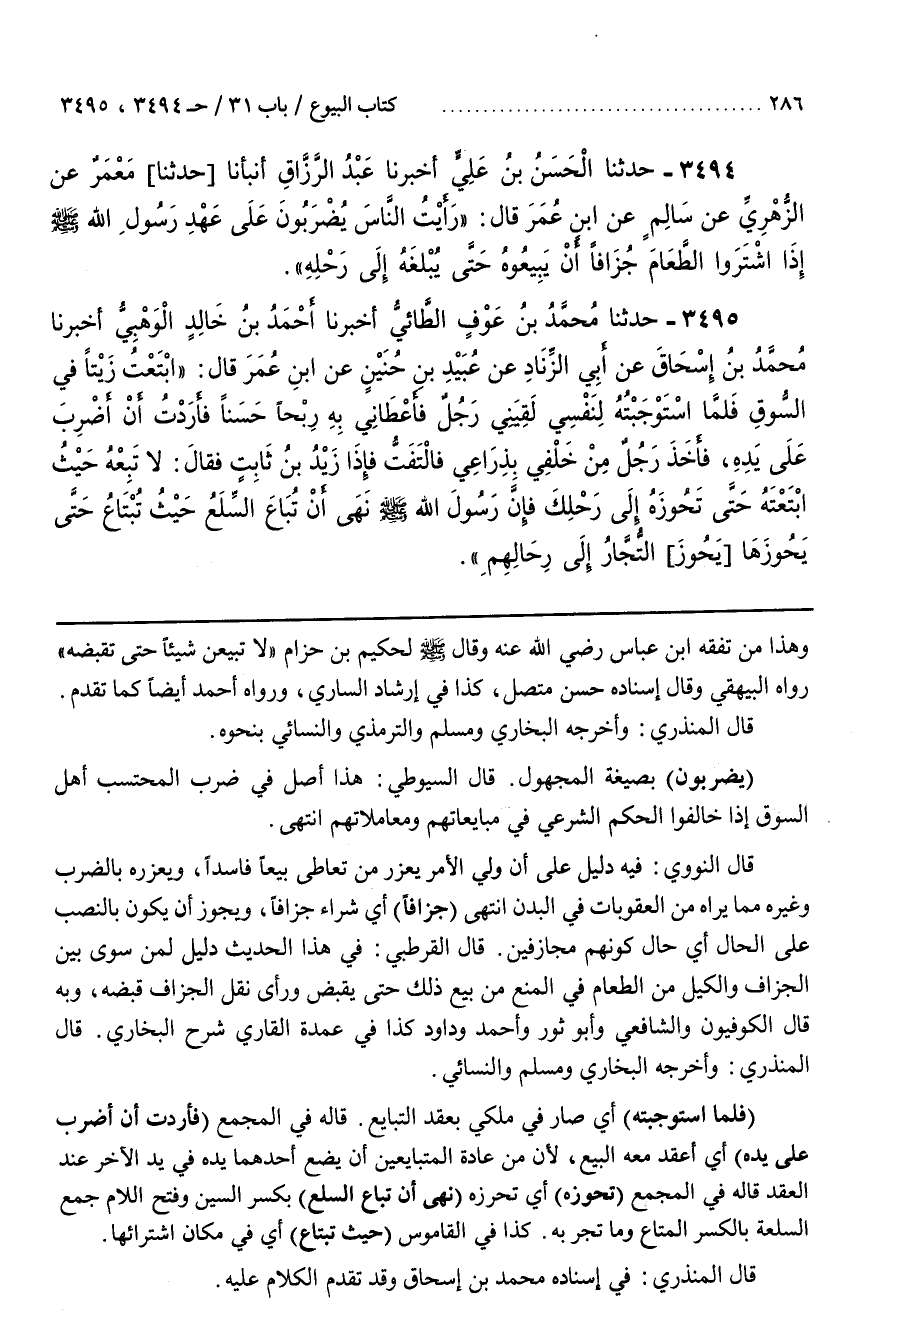 ٢٨٦ ..................................... كتاب البيوع / باب ٣١ / حـ ٣٤٩٤ ، ٣٤٩٥
٣٤٩٤ ـ حدثنا الْحَسَنُ بنُ عَلِيٍّ أخبرنا عَبْدُ الرَّزَّاقِ أنبأنا [حدثنا] مَعْمَرٌ عن
الزُّهْرِيِّ عن سَالِمٍ عن ابنِ عُمَرَ قال: «رَأَيْتُ النَّاسَ يُضْرَبُونَ عَلَى عَهْدِ رَسُولِ الله ﷺ
إِذَا اشْتَرَوا الطَّعَامَ جُزَافاً أَنْ يَبِيعُوهُ حَتَّى يُبْلغَهُ إِلَى رَحْلِهِ».
٣٤٩٥ ـ حدثنا مُحمَّدُ بنُ عَوْفٍ الطَّائيُّ أخبرنا أَحْمَدُ بنُ خَالِدٍ الْوَهْبِيُّ أخبرنا
مُحمَّدُ بنُ إسْحَاقَ عن أَبي الزِّنَادِ عن عُبَيْدِ بنِ حُنَيْنٍ عن ابنِ عُمَرَ قال: «ابْتَعْتُ زَيْتاً في
السُّوقِ فَلمَّا اسْتَوْجَبْتُهُ لِنَفْسِي لَقِيَني رَجُلٌ فأَعْطَاني بِهِ رِبْحاً حَسَناً فأَرَدْتُ أَنْ أَضْرِبَ
عَلَى يَدِهِ، فَأَخَذَ رَجُلٌ مِنْ خَلْفِي بِذِرَاعِي فالْتَفَتُّ فإِذَا زَيْدُ بنُ ثَابِتٍ فقالَ: لا تَبِعْهُ حَيْثُ
ابْتَعْتَهُ حَتَّى تَحُوزَهُ إِلَى رَحْلِكَ فإِنَّ رَسُولَ الله ﷺ نَهَى أَنْ تُبَاعَ السِّلَعُ حَيْثُ تُبْتَاعُ حَتَّى
يَحُوزَهَا [يَحُوزَ] التُّجَّارُ إِلَى رِحَالِهِمِ».
وهذا من تفقه ابن عباس رضي الله عنه وقال ﷺ لحكيم بن حزام «لا تبيعن شيئاً حتى تقبضه»
رواه البيهقي وقال إسناده حسن متصل، كذا في إرشاد الساري، ورواه أحمد أيضاً كما تقدم.
قال المنذري: وأخرجه البخاري ومسلم والترمذي والنسائي بنحوه.
(يضربون) بصيغة المجهول. قال السيوطي: هذا أصل في ضرب المحتسب أهل
السوق إذا خالفوا الحكم الشرعي في مبايعاتهم ومعاملاتهم انتهى.
قال النووي: فيه دليل على أن ولي الأمر يعزر من تعاطى بيعاً فاسداً، ويعزره بالضرب
وغيره مما يراه من العقوبات في البدن انتهى (جزافاً) أي شراء جزافاً، ويجوز أن يكون بالنصب
على الحال أي حال كونهم مجازفين. قال القرطبي: في هذا الحديث دليل لمن سوى بين
الجزاف والكيل من الطعام في المنع من بيع ذلك حتى يقبض ورأى نقل الجزاف قبضه، وبه
قال الكوفيون والشافعي وأبو ثور وأحمد وداود كذا في عمدة القاري شرح البخاري. قال
المنذري: وأخرجه البخاري ومسلم والنسائي.
(فلما استوجبته) أي صار في ملكي بعقد التبايع. قاله في المجمع (فأردت أن أضرب
على يده) أي أعقد معه البيع، لأن من عادة المتبايعين أن يضع أحدهما يده في يد الآخر عند
العقد قاله في المجمع (تحوزه) أي تحرزه (نهى أن تباع السلع) بكسر السين وفتح اللام جمع
السلعة بالكسر المتاع وما تجر به. كذا في القاموس (حيث تبتاع) أي في مكان اشترائها.
قال المنذري: في إسناده محمد بن إسحاق وقد تقدم الكلام عليه.